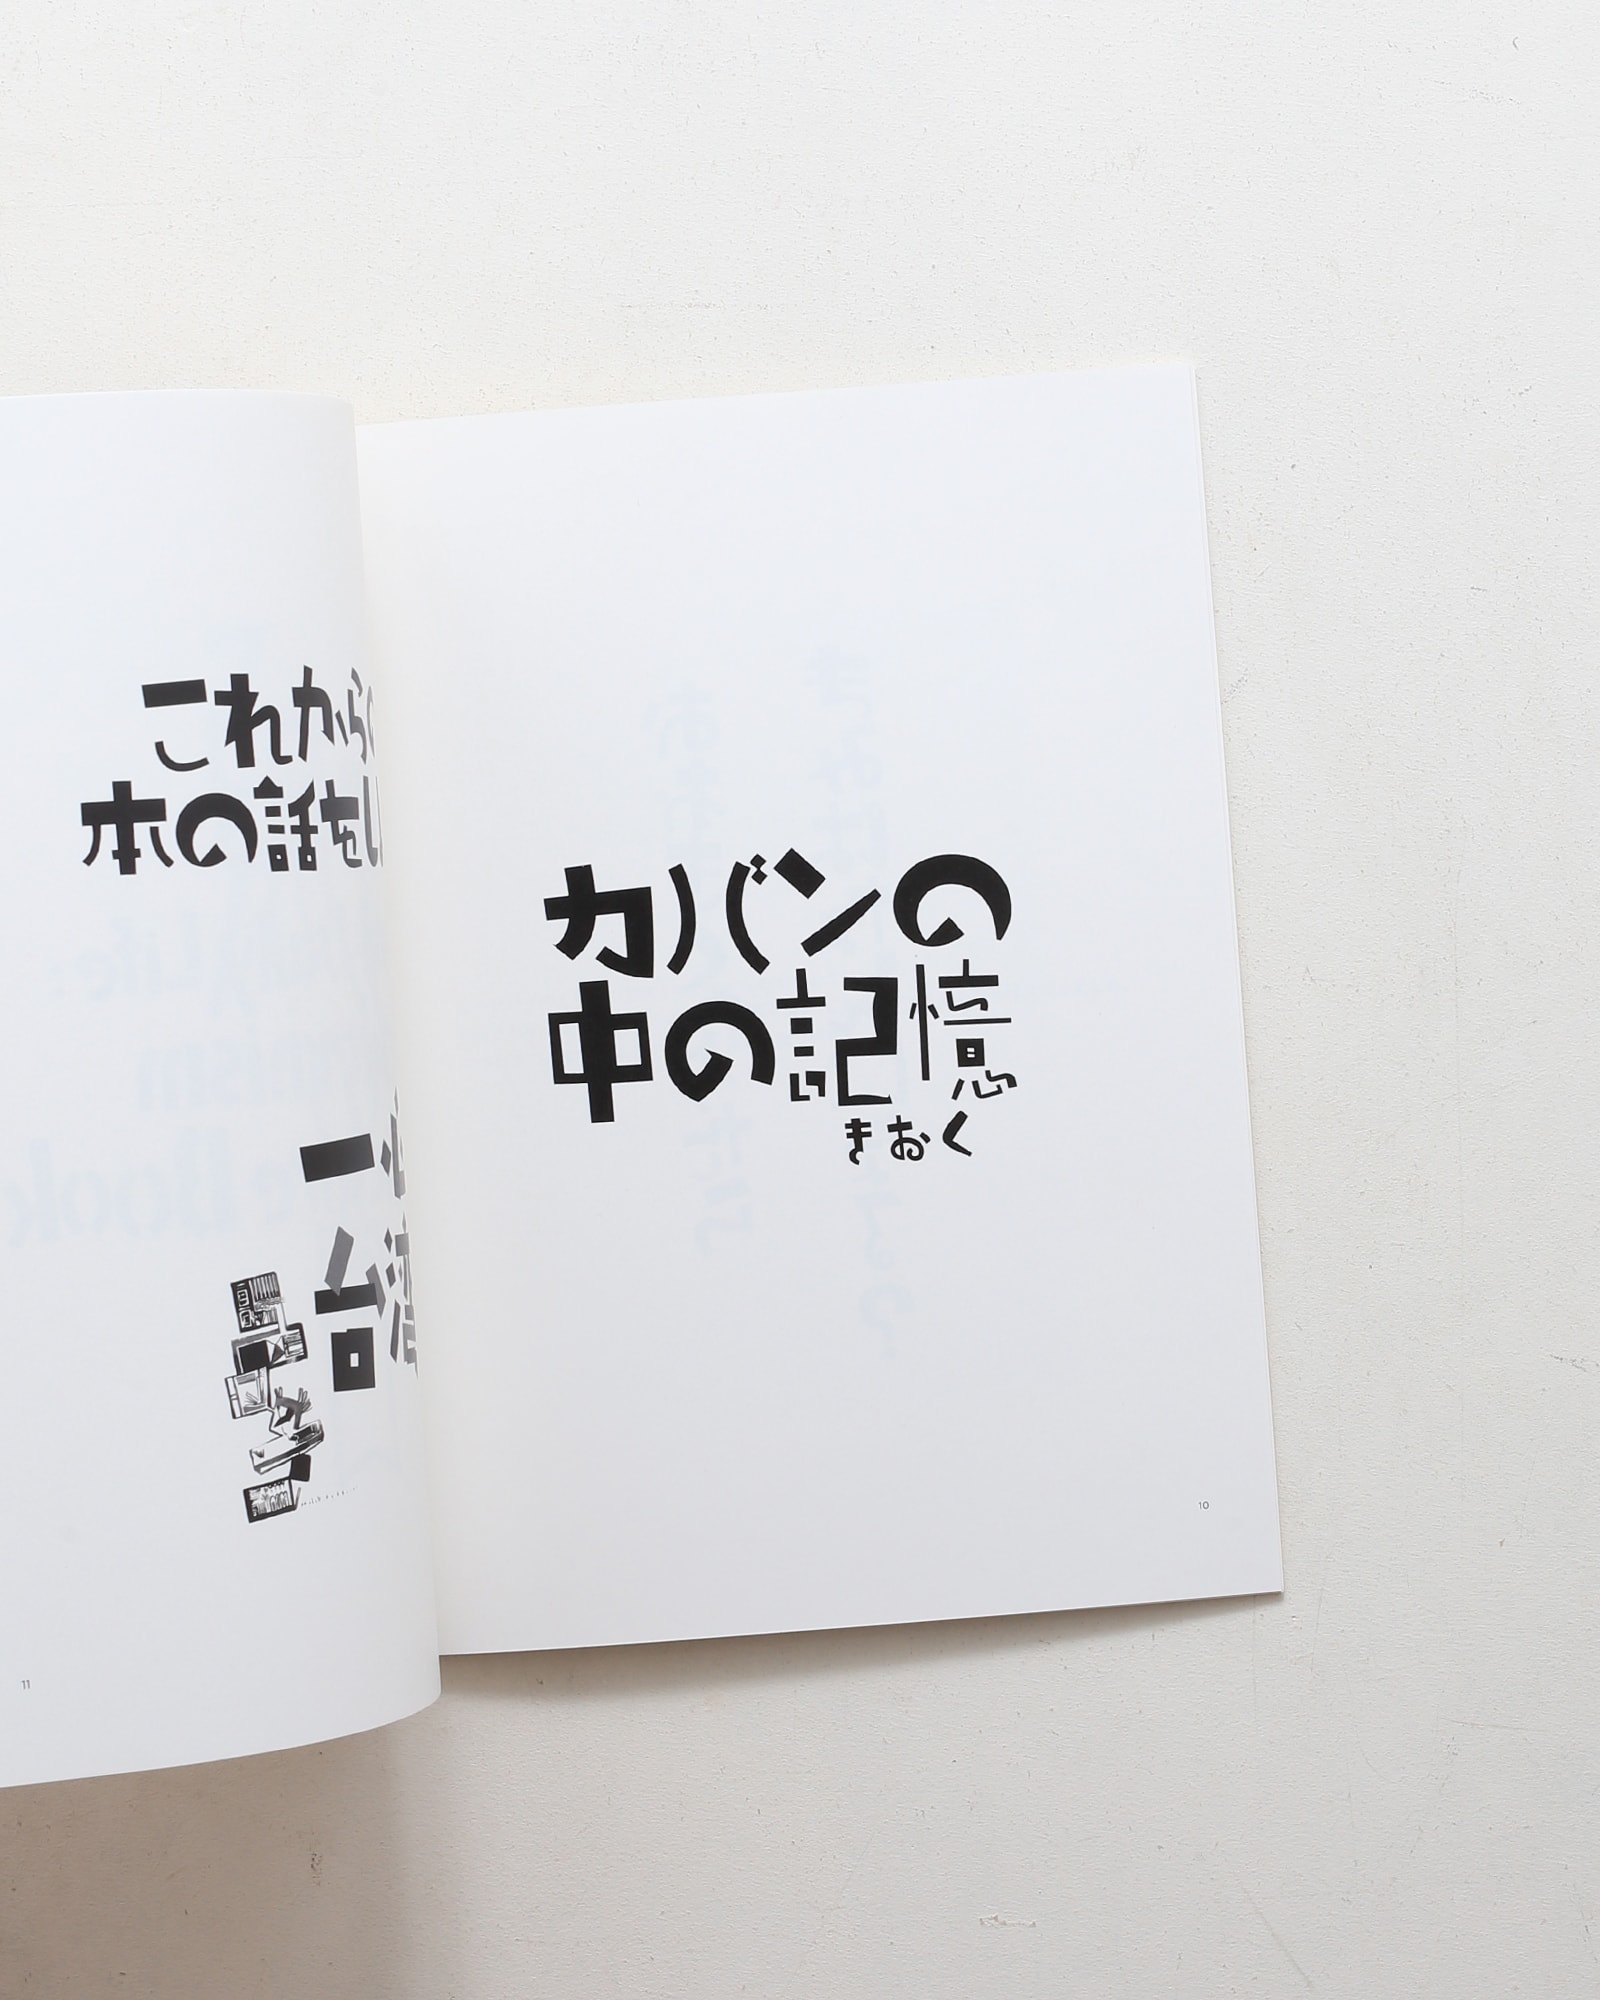 カバンの
中の記憶
きおく
10
これからの
本の話をし
一
台湾
11